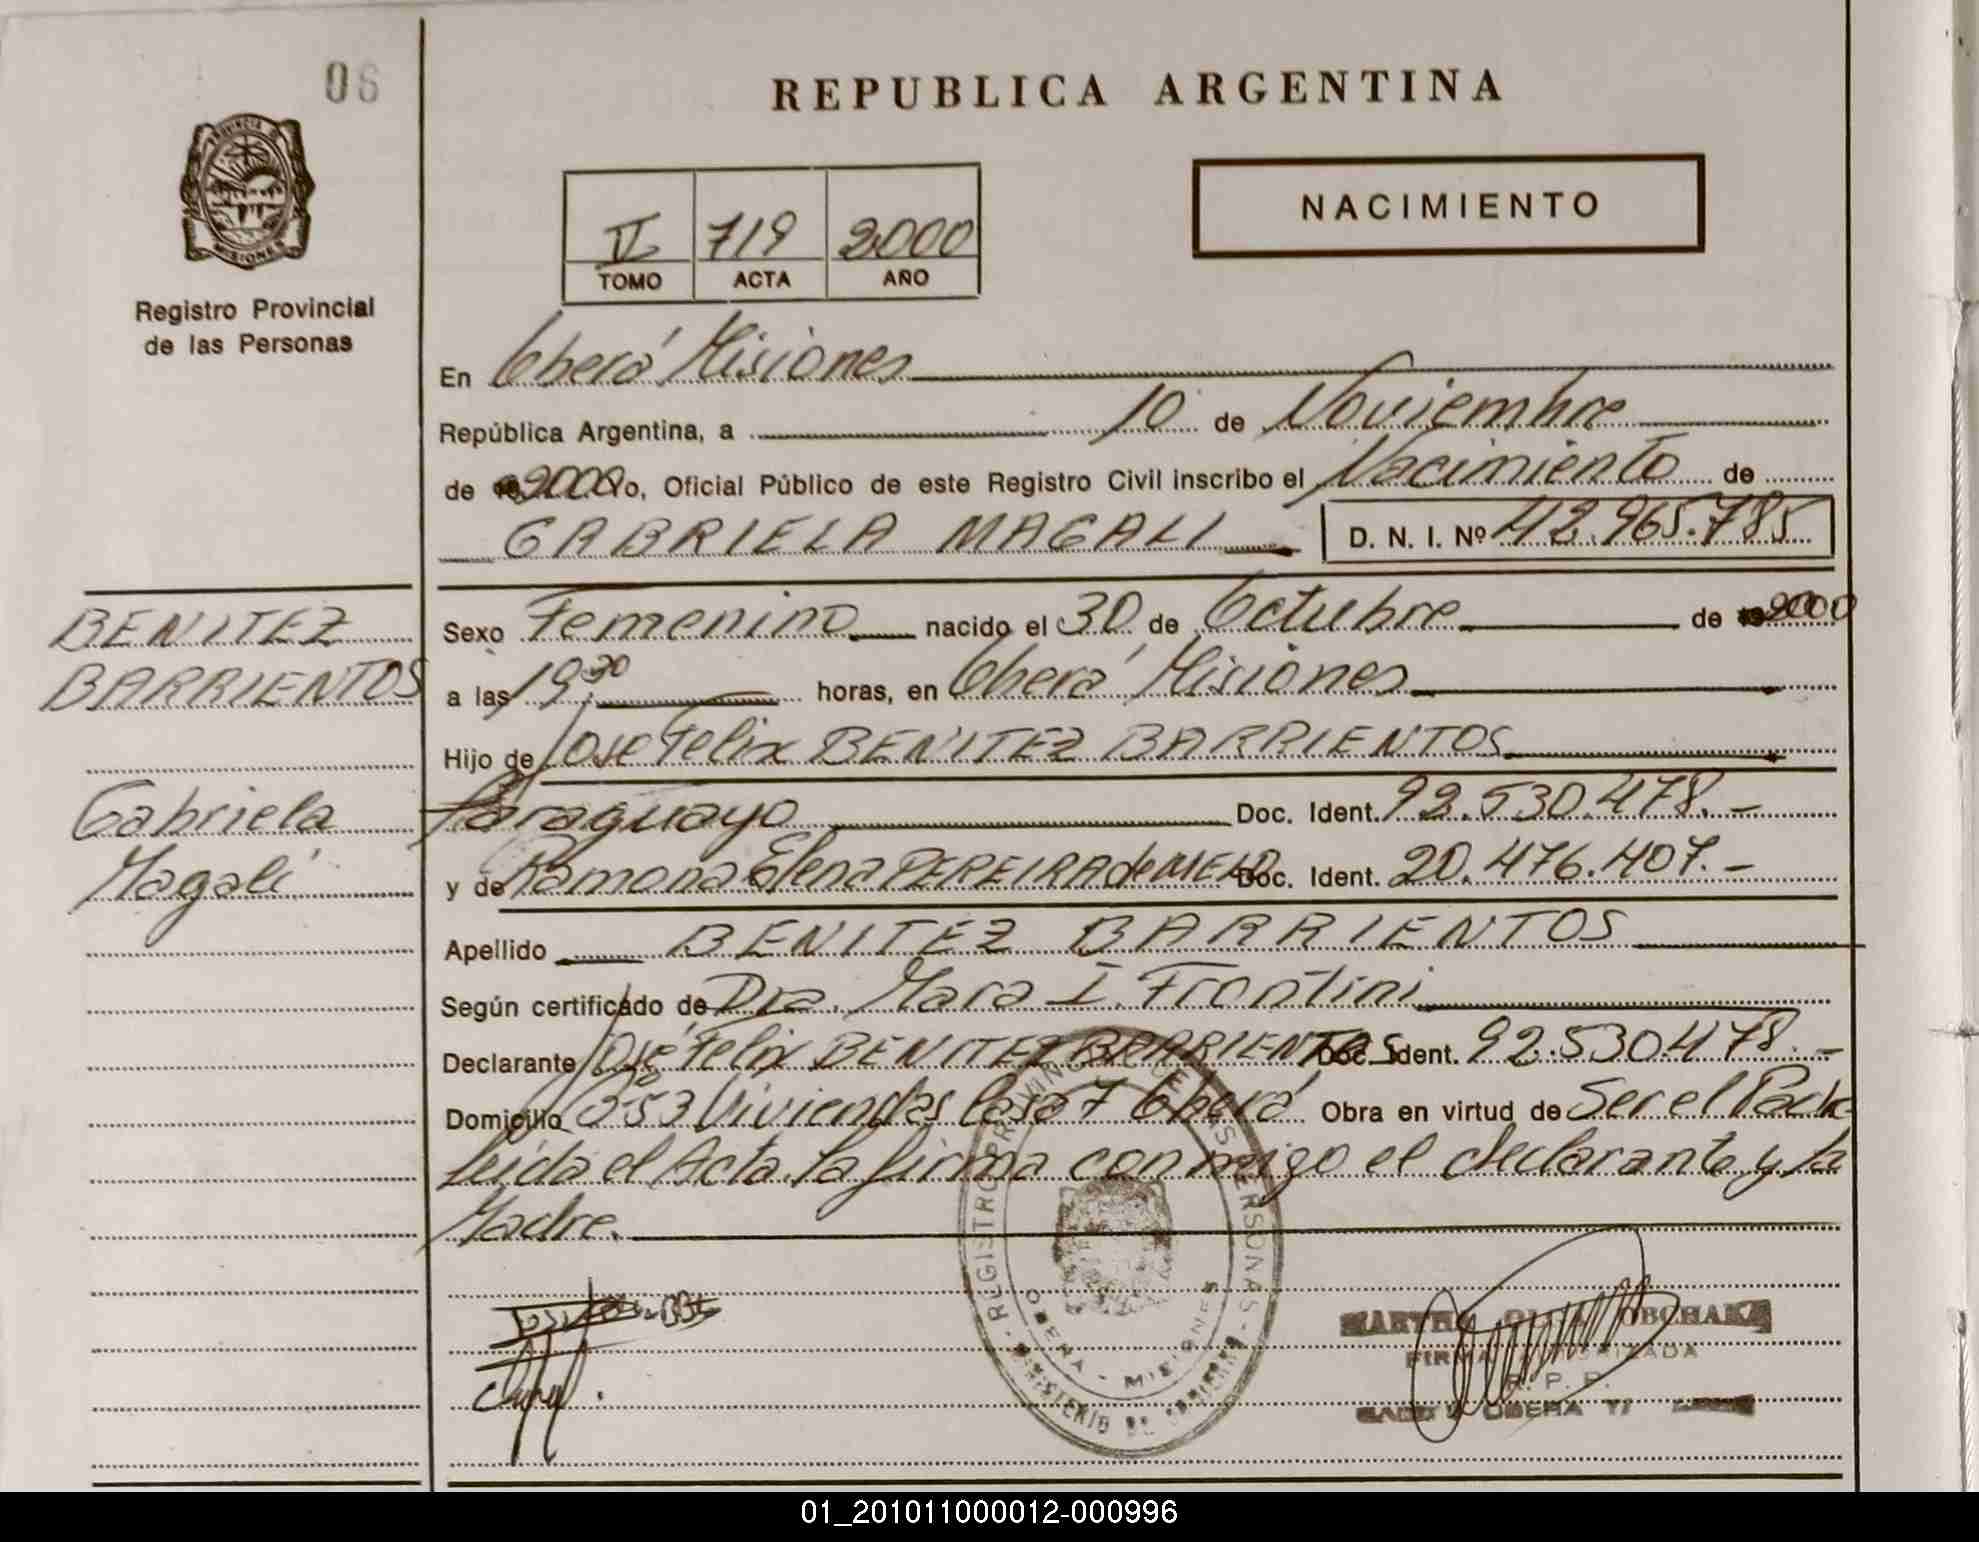 06
REPUBLICA ARGENTINA
PROVINCIA DE
MISIONES
Registro Provincial
de las Personas
719 2000
TOMO ACTA AÑO
NACIMIENTO
En Oberá Misiones
República Argentina, a 10 de Noviembre
de 2000 Yo, Oficial Público de este Registro Civil inscribo el Nacimiento de
GABRIELA MAGALI D. N. I. Nº 42.965.785
BENITEZ
BARRIENTOS
Gabriela
Magalí
Sexo Femenino nacido el 30 de Octubre de 2000
a las 19:30 horas, en Oberá Misiones
Hijo de José Felix BENITEZ BARRIENTOS
Paraguayo Doc. Ident. 92.530.478.-
y de Ramona Elena PEREIRA de MELO Doc. Ident. 20.476.407.-
Apellido BENITEZ BARRIENTOS
Según certificado de Dra. Mara I. Frontini
Declarante José Felix BENITEZ BARRIENTOS Doc. Ident. 92.530.478.-
Domicilio 353 Viviendas Casa 7 Oberá Obra en virtud de Ser el Padre
leida el Acta, la firma conmigo el declarante y la
Madre.
REGISTRO PROVINCIAL DE LAS PERSONAS
OBERA - MISIONES
MINISTERIO DE GOBIERNO
MARTHA OBCHAK
FIRMA AUTORIZADA
R. P. P.
OBERA
01_201011000012-000996